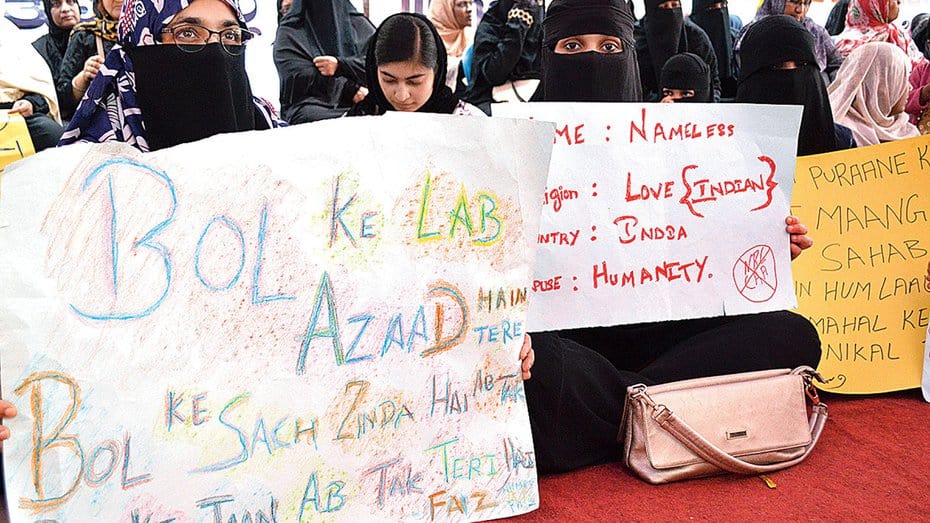 BOL KE LAB
AZAAD HAIN
TERE
BOL KE SACH ZINDA HAI AB TAK
BOL KE JAAN AB TAK TERI HAI
FAIZ
: NAMELESS
: LOVE {INDIAN}
: INDIA
: HUMANITY.
NRC
CAA
PURAANE K
MAANG
SAHAB
HUM LAA
MAHAL KE
NIKAL